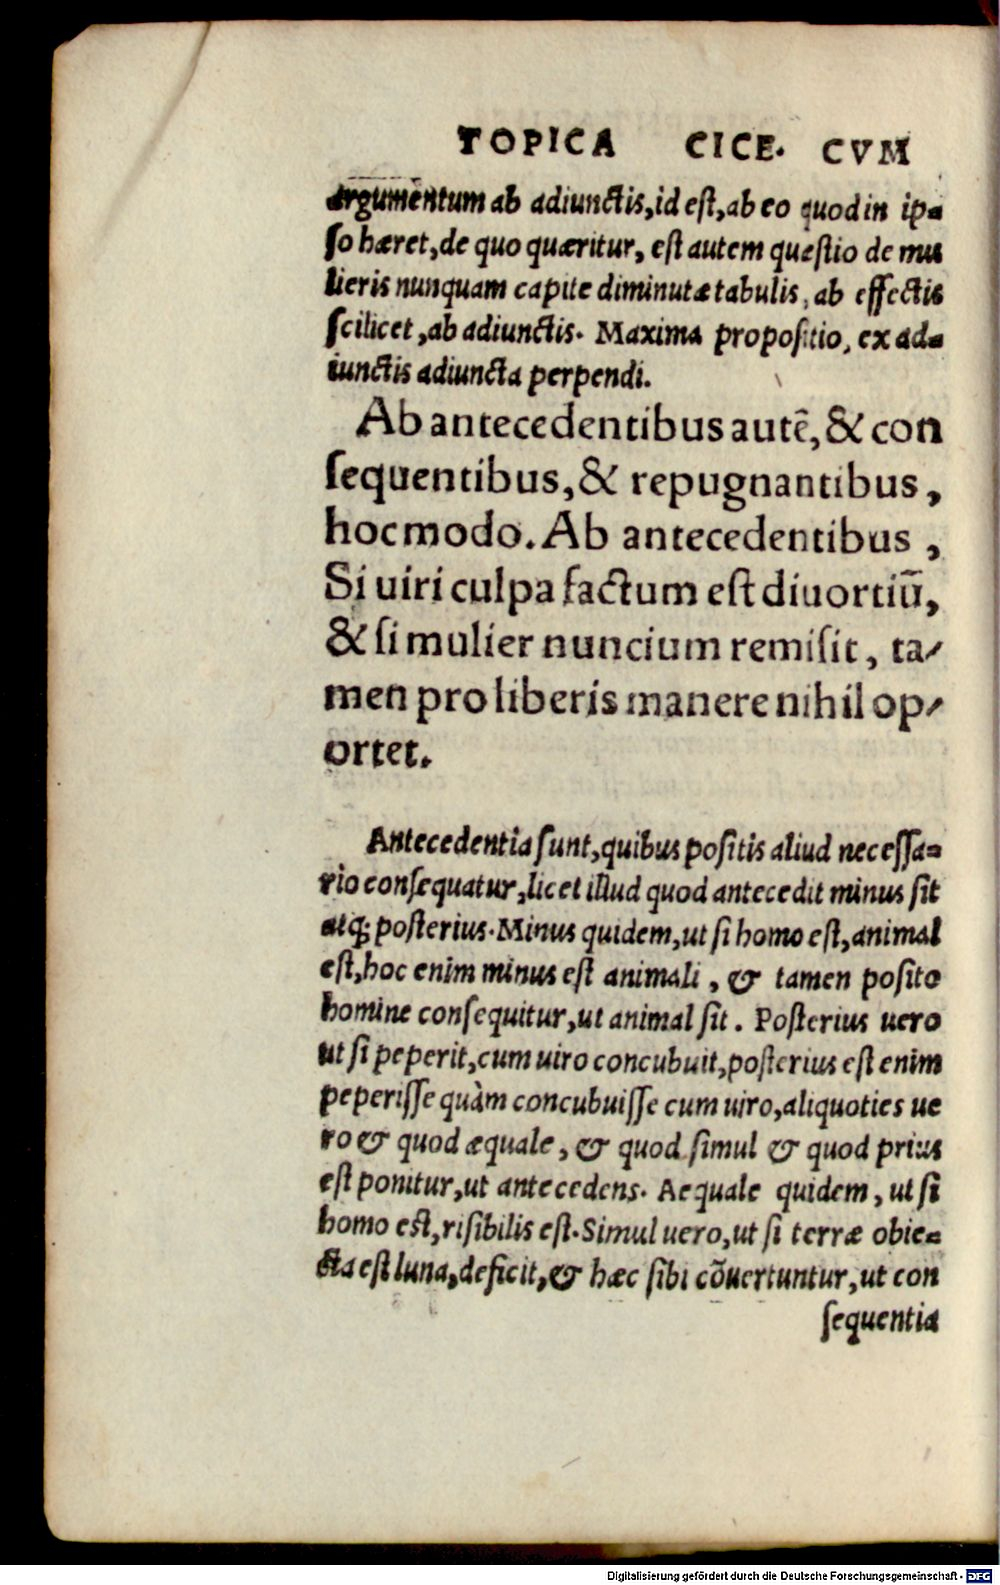 TOPICA CICE. CVM
argumentum ab adiunctis, id est, ab eo quod in ip=
so hæret, de quo quæritur, est autem questio de mu
lieris nunquam capite diminutæ tabulis, ab effectis
scilicet, ab adiunctis. Maxima propositio, ex ad=
iunctis adiuncta perpendi.
Ab antecedentibus autē, & con
sequentibus, & repugnantibus,
hoc modo. Ab antecedentibus,
Si uiri culpa factum est diuortiū,
& si mulier nuncium remisit, ta-
men pro liberis manere nihil op-
ortet.
Antecedentia sunt, quibus positis aliud necessa=
rio consequatur, licet illud quod antecedit minus sit
atq; posterius. Minus quidem, ut si homo est, animal
est, hoc enim minus est animali, & tamen posito
homine consequitur, ut animal sit. Posterius uero
ut si peperit, cum uiro concubuit, posterius est enim
peperisse quàm concubuisse cum uiro, aliquoties ue
ro & quod æquale, & quod simul & quod prius
est ponitur, ut antecedens. Aequale quidem, ut si
homo est, risibilis est. Simul uero, ut si terræ obie=
cta est luna, deficit, & hæc sibi cōuertuntur, ut con
sequentia
Digitalisierung gefördert durch die Deutsche Forschungsgemeinschaft - DFG